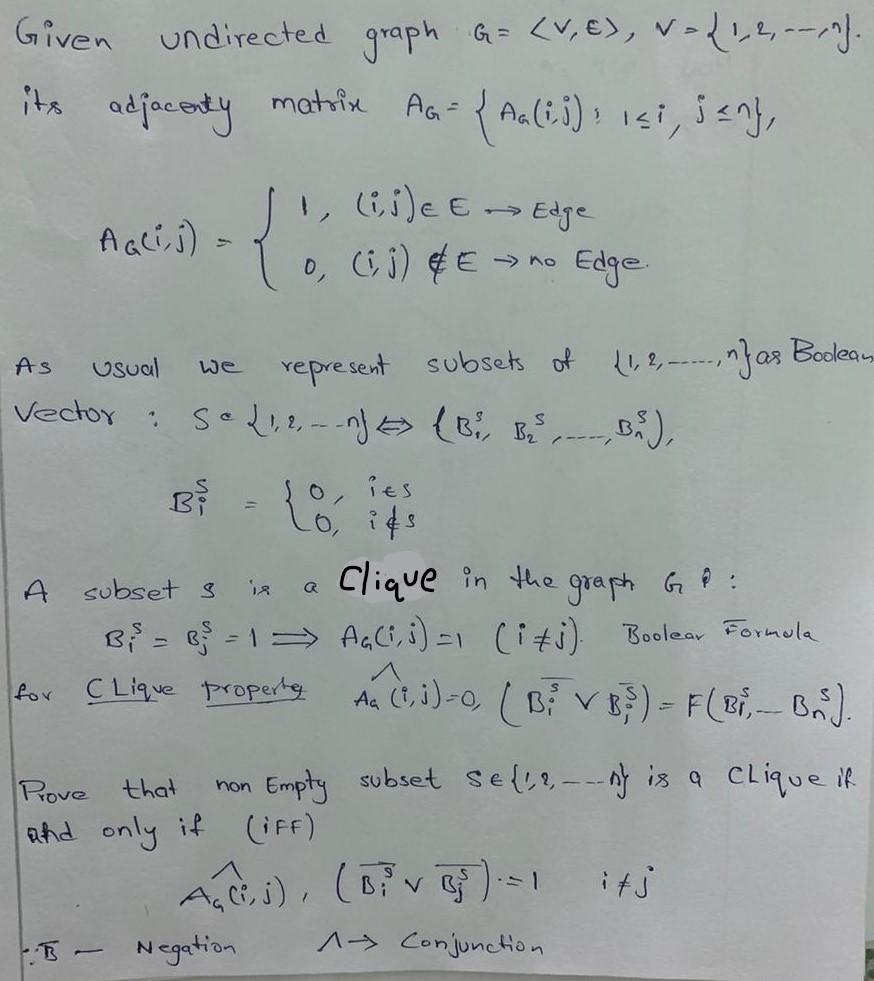 Given undirected graph G = <V, E>, V = {1, 2, ---, n}.
its adjacenty matrix AG = { AG(i,j) : 1 ≤ i, j ≤ n},
AG(i,j) = { 1, (i,j) ∈ E → Edge
0, (i,j) ∉ E → no Edge.
As usual we represent subsets of {1, 2, -----, n} as Boolean
Vector : S ∈ {1, 2, --- n} ⇔ {B₁ˢ, B₂ˢ, ----, Bₙˢ),
Bᵢˢ = { 0, i ∈ s
0, i ∉ s
A subset s is a Clique in the graph G :
Bᵢˢ = Bⱼˢ = 1 ⟹ AG(i,j) = 1 (i ≠ j). Boolear Formula
for CLique property ∧ AG (i,j)=0, ( B̄ᵢˢ ∨ B̄ⱼˢ ) = F(B₁ˢ, --- Bₙˢ).
Prove that non Empty subset S ∈ {1, 2, --- n} is a CLique if
and only if (iFF)
∧ AG(i,j), ( B̄ᵢˢ ∨ B̄ⱼˢ ) = 1 i ≠ j
∵ B̄ — Negation ∧ → Conjunction